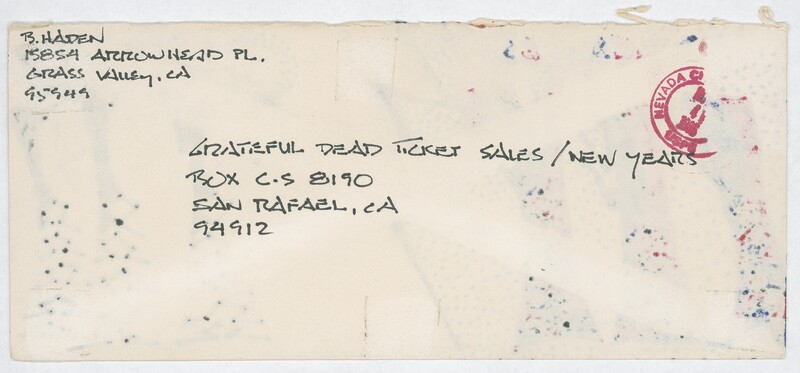 B. HADEN
15854 ARROWHEAD PL.
GRASS VALLEY, CA
95949
NEVADA
GRATEFUL DEAD TICKET SALES / NEW YEARS
BOX C-S 8190
SAN RAFAEL, CA
94912